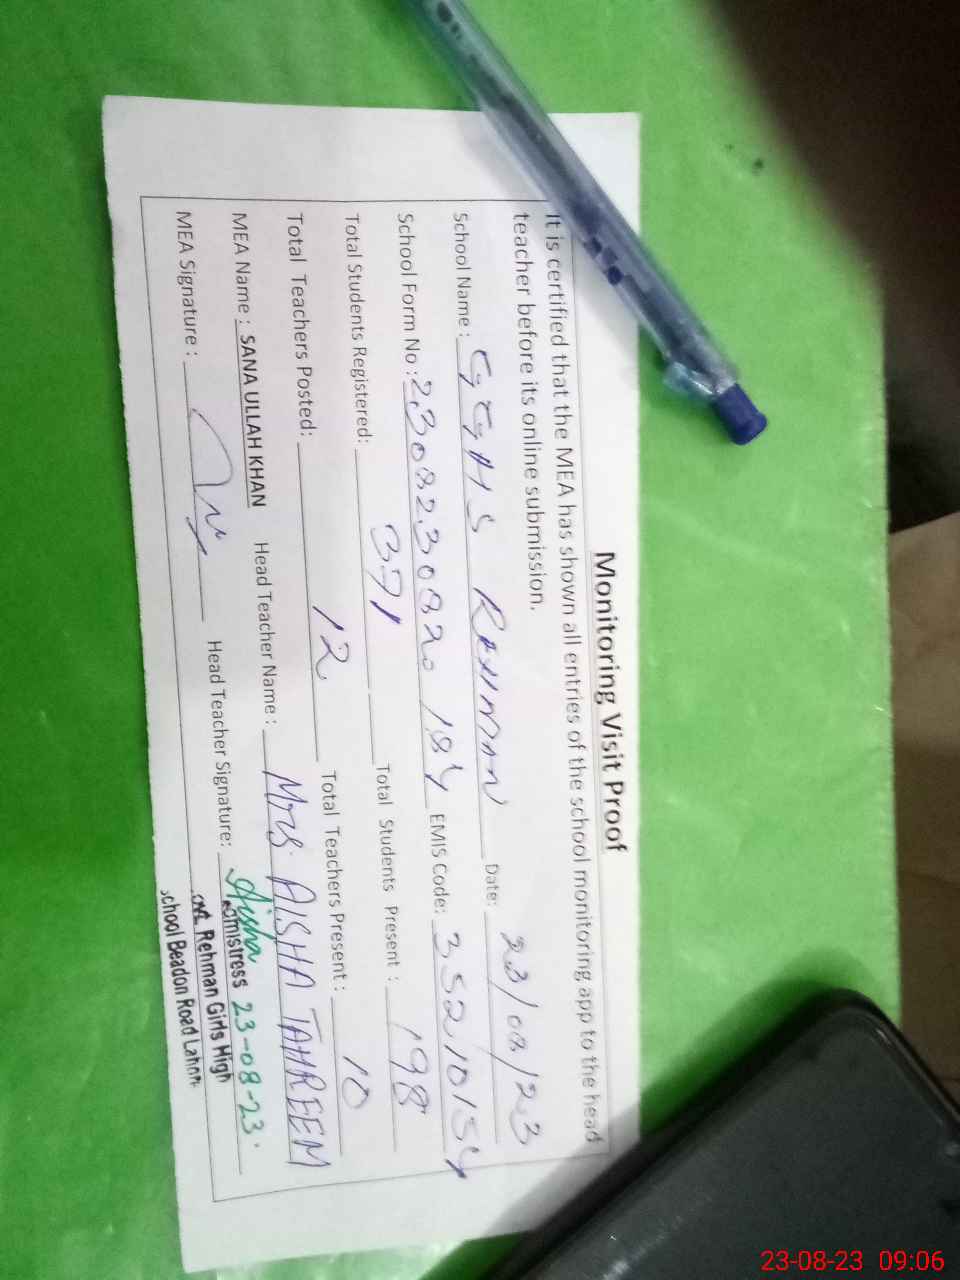 Monitoring Visit Proof
It is certified that the MEA has shown all entries of the school monitoring app to the head
teacher before its online submission.
School Name : GGHS RAHMAN Date: 23/08/23
School Form No : 2308230820184 EMIS Code: 35210154
Total Students Registered: 371 Total Students Present : 198
Total Teachers Posted: 12 Total Teachers Present : 10
MEA Name : SANA ULLAH KHAN Head Teacher Name : Mrs. AISHA TAHREEM
MEA Signature : Head Teacher Signature: Aisha 23-08-23.
Rehman Girls High
School Beadon Road
23-08-23 09:06